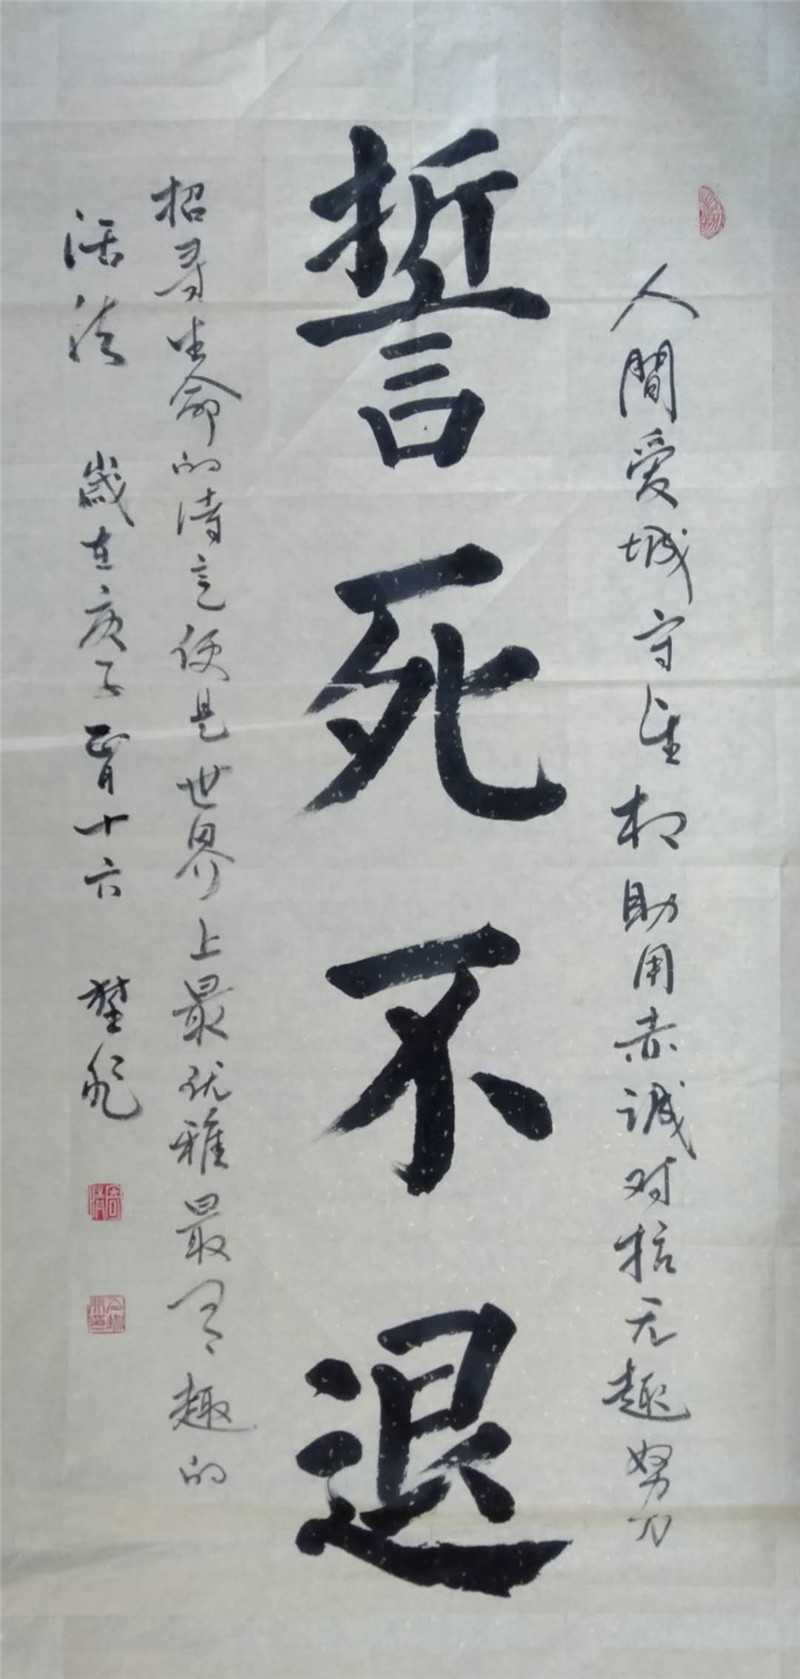 人間爱城守望相助用赤诚对抗无趣努力
誓死不退
招寻生命的诗意便是世界上最优雅最有趣的
活法 歲在庚子正月十六